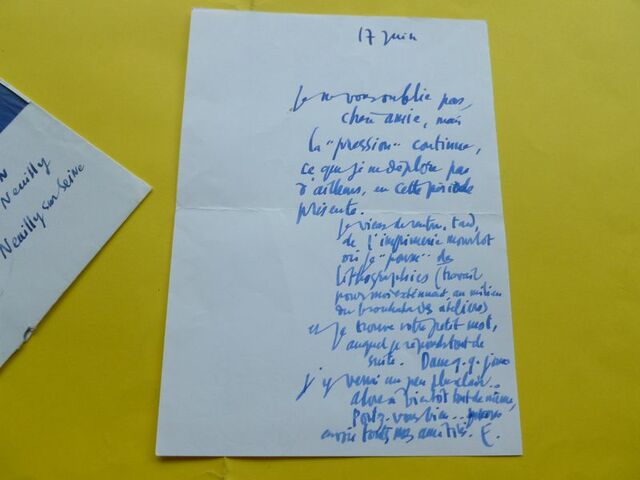 17 juin
Je ne vous oublie pas,
chère amie, mais
la "pression" continue,
ce que je ne déplore pas
d'ailleurs, en cette période
présente.
Je viens de rentrer, tard,
de l'imprimerie mourlot
où je "pousse" des
lithographies (travail
pour moi exténuant, au milieu
du brouhaha des ateliers)
et je trouve votre petit mot,
auquel je réponds tout de
suite. Dans q.q. jours
j'y verrai un peu plus clair..
alors à bientôt tout de même,
Portez-vous bien...
envoie toutes mes amitiés. E.
Neuilly
Neuilly sur Seine